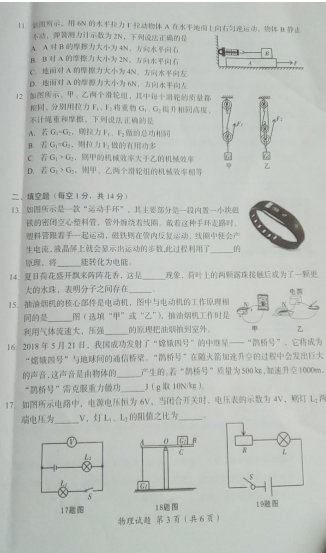 11. 如图所示，用 6N 的水平拉力 F 拉动物体 A 在水平地面上向右匀速运动，物体 B 静止
不动，弹簧测力计示数为 2N，下列说法正确的是
A. A 对 B 的摩擦力大小为 4N，方向水平向右
B. B 对 A 的摩擦力大小为 2N，方向水平向右
C. 地面对 A 的摩擦力大小为 4N，方向水平向左
D. 地面对 A 的摩擦力大小为 6N，方向水平向左
B
A
F
12. 如图所示，甲、乙两个滑轮组，其中每个滑轮的质量都
相同，分别用拉力 F₁、F₂ 将重物 G₁、G₂ 提升相同高度，
不计绳重和摩擦，下列说法正确的是
A. 若 G₁=G₂，则拉力 F₁、F₂ 做的总功相同
B. 若 G₁=G₂，则拉力 F₂ 做的有用功多
C. 若 G₁＞G₂，则甲的机械效率大于乙的机械效率
D. 若 G₁＞G₂，则甲、乙两个滑轮组的机械效率相等
F₁
F₂
甲 乙
二、填空题（每空 1 分，共 14 分）
13. 如图所示是一款“运动手环”，其主要部分是一段内置一小块磁
铁的密闭空心塑料管，管外绕着线圈，戴着这种手环走路时，
塑料管跟着手一起运动，磁铁则在管内反复运动，线圈中便会产
生电流，液晶屏上就会显示出运动的步数，此过程利用了______的
原理，将______能转化为电能。
14. 夏日荷花盛开飘来阵阵花香，这是______现象，荷叶上的两颗露珠接触后成为了一颗更
大的水珠，表明分子之间存在______。
15. 抽油烟机的核心部件是电动机，图中与电动机的工作原理相
同的是______图（选填“甲”或“乙”），抽油烟机工作时是
利用气体流速大，压强______的原理把油烟抽到室外。
电源
甲 乙
16. 2018 年 5 月 21 日，我国成功发射了“嫦娥四号”的中继星——“鹊桥号”，它将成为
“嫦娥四号”与地球间的通信桥梁。“鹊桥号”在随火箭加速升空的过程中会发出巨大
的声音，这声音是由物体的______产生的。若“鹊桥号”质量为 500kg，加速升空 1000m，
“鹊桥号”需克服重力做功______J（g 取 10N/kg）。
17. 如图所示电路中，电源电压恒为 6V，当闭合开关时，电压表的示数为 4V，则灯 L₂ 两
端电压为______V，灯 L₁、L₂ 的阻值之比为______。
V
L₁
L₂
S
17题图
A O B
G₂
C
G₁
18题图
R
L
S
19题图
物理试题 第 3 页（共 6 页）